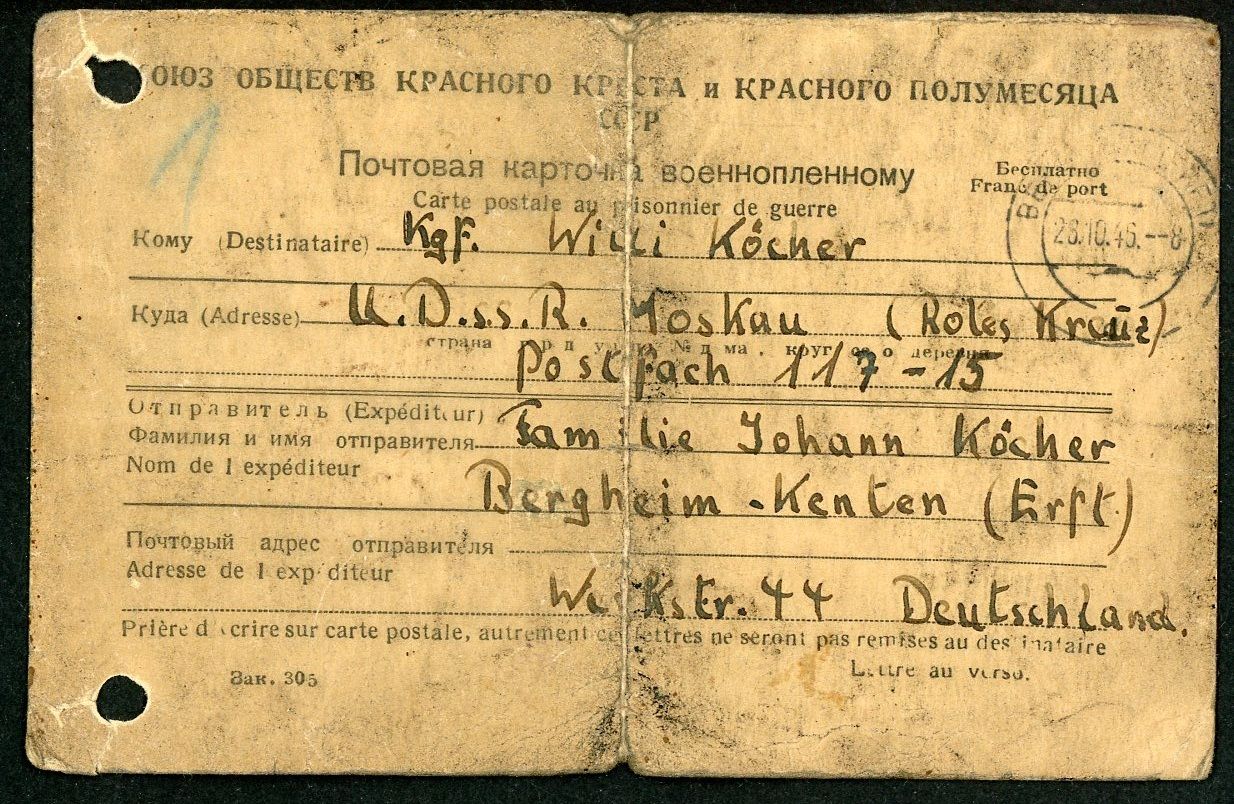 СОЮЗ ОБЩЕСТВ КРАСНОГО КРЕСТА и КРАСНОГО ПОЛУМЕСЯЦА
СССР
Почтовая карточка военнопленному
Бесплатно
Franc de port
Carte postale au prisonnier de guerre
28.10.46.--8
Кому (Destinataire) Kgf. Willi Köcher
Куда (Adresse) U.D.S.S.R. Moskau (Rotes Kreuz)
страна
Postfach 117-15
Отправитель (Expéditeur)
Фамилия и имя отправителя Familie Johann Köcher
Nom de l expéditeur
Bergheim-Kenten (Erft)
Почтовый адрес отправителя
Adresse de l expéditeur
44 Deutschland.
Prière d'écrire sur carte postale, autrement ces lettres ne seront pas remises au destinataire
Зак. 305
Lettre au verso.
1